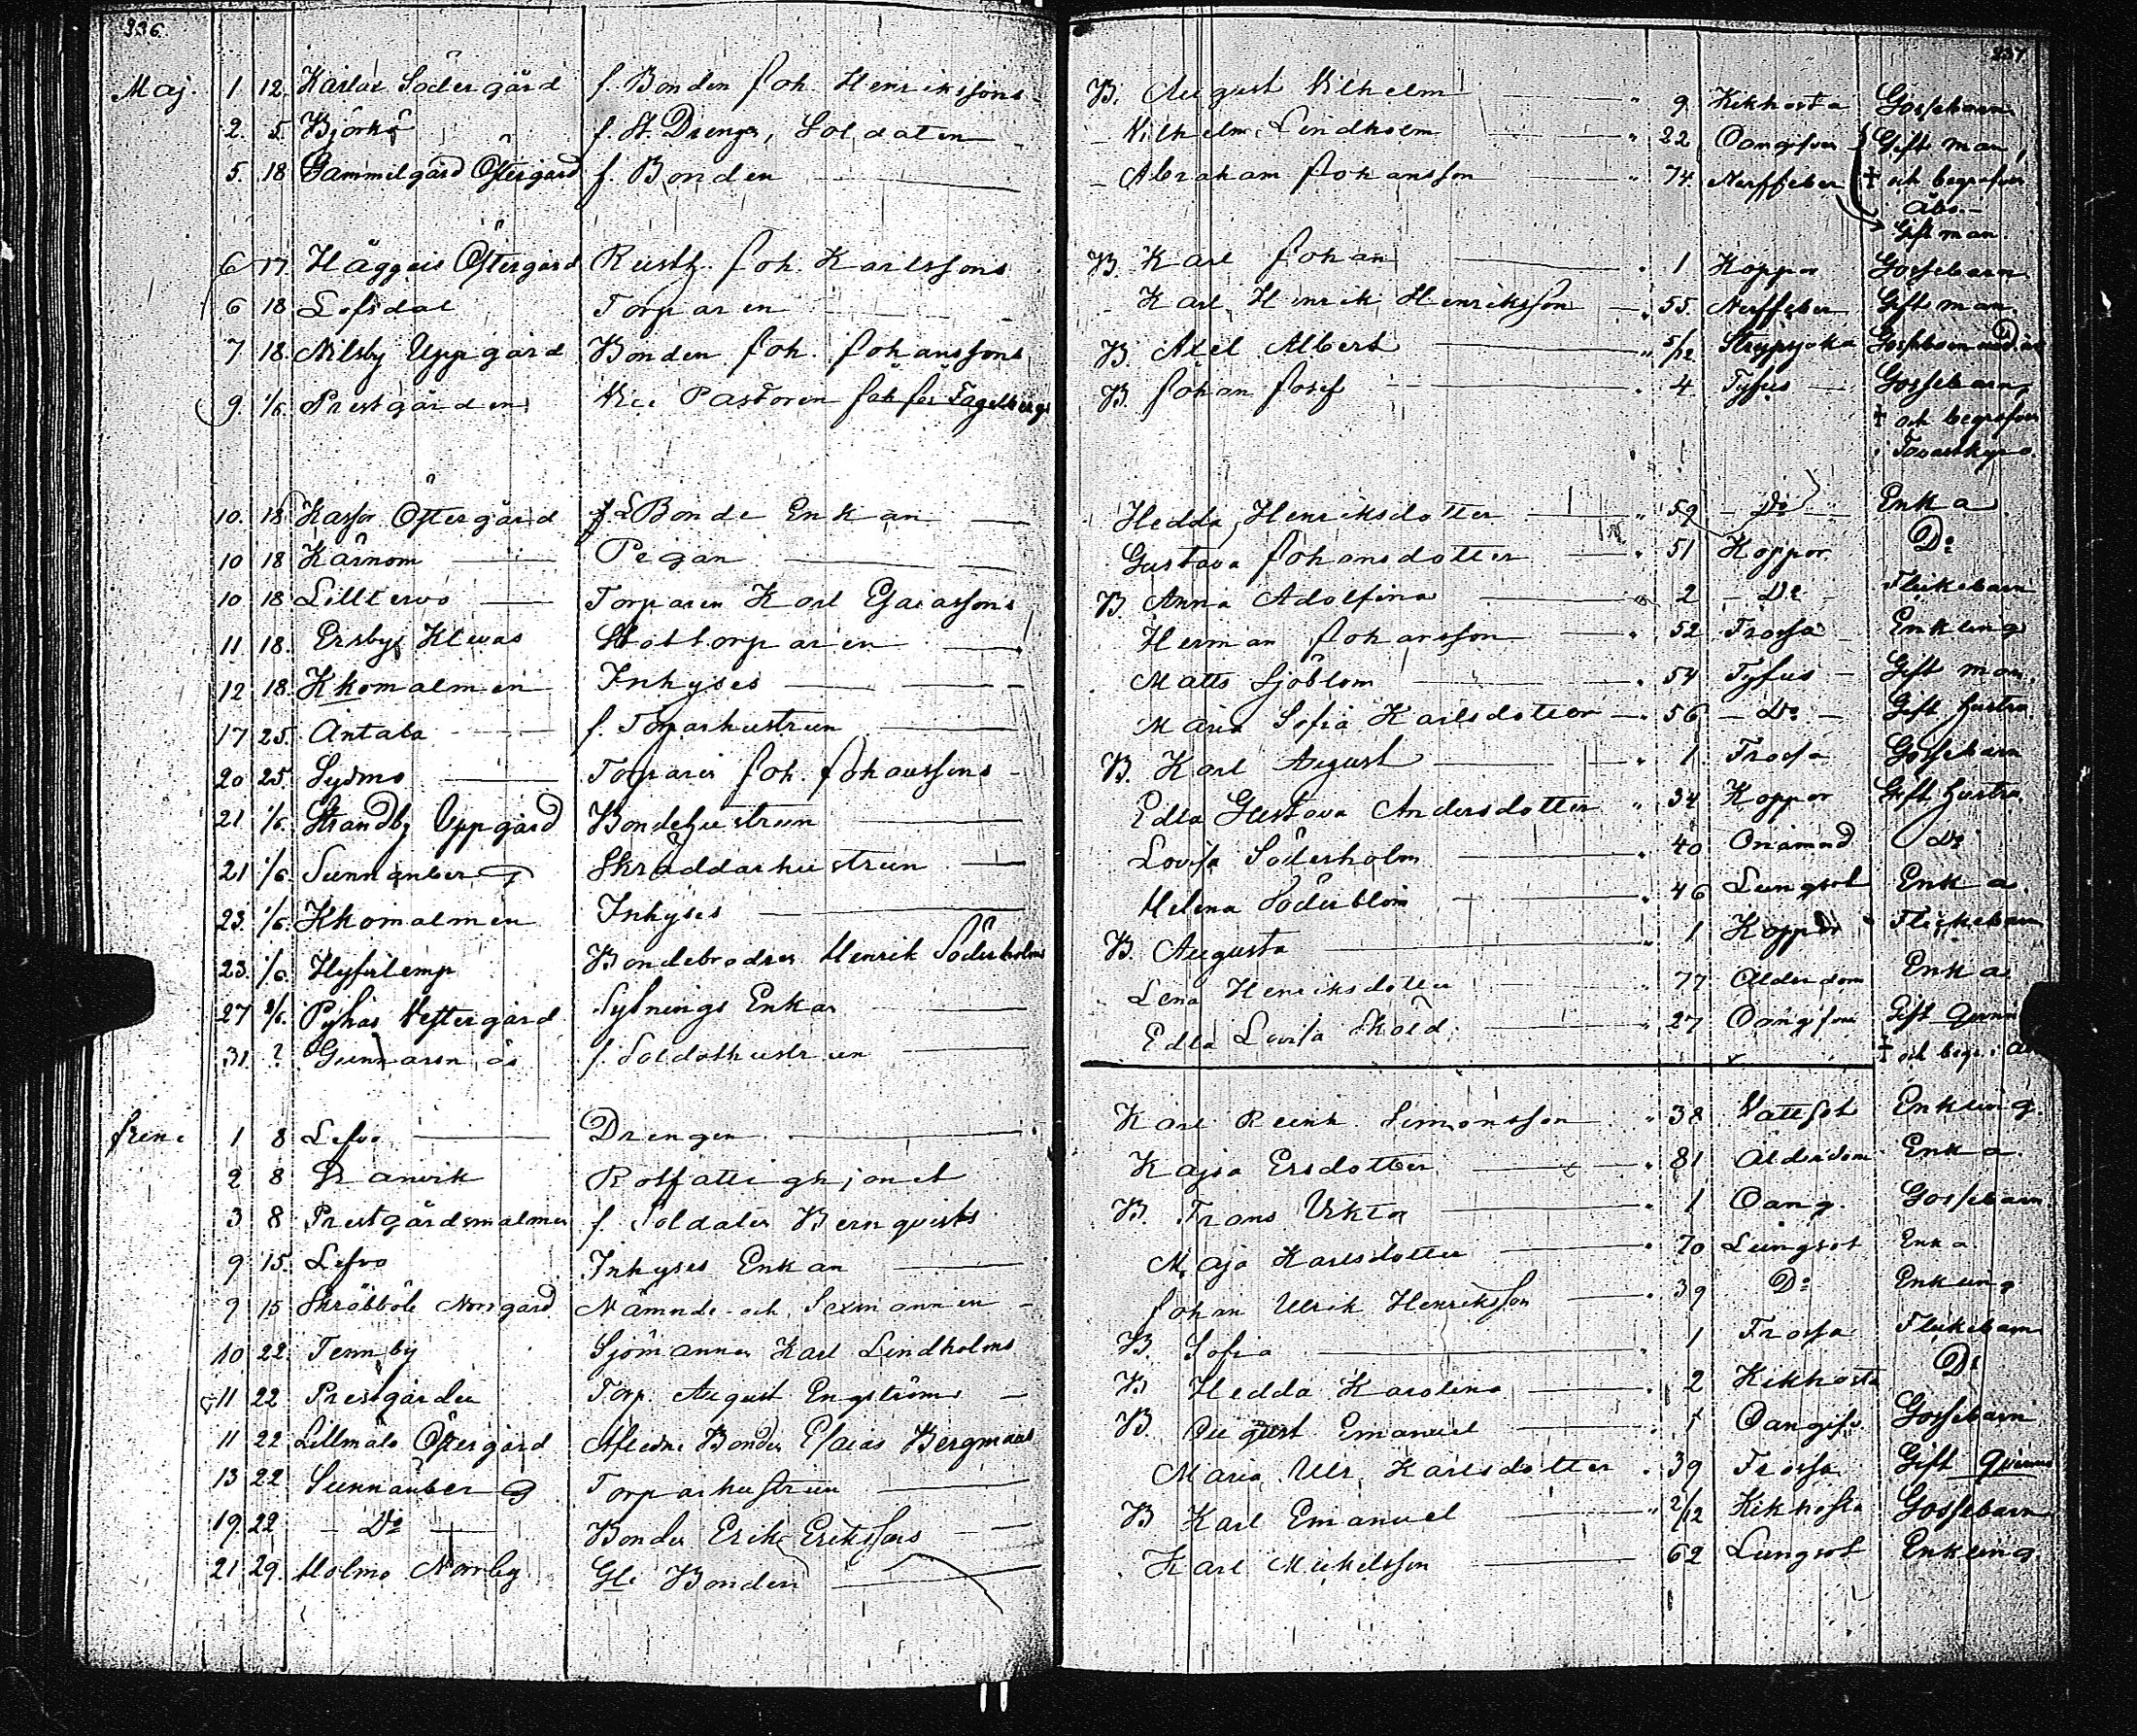 336.
337
Maj. 1 12. Karlax Södergård f. Bonden Joh. Henrikssons B. August Vilhelm " 9 Kikhosta Gossebarn
2. 5. Björkö f. St. Drengen, Soldaten Vilhelm Lindholm " 22 Oangifven Gift man,
5. 18 Gammelgård Östergård f. Bonden Abraham Johansson " 74 Nerffeber † och begrafven
Åbo.
Gift man.
6 17 Häggais Östergård Rusth. Joh. Karlssons B. Karl Johan " 1 Koppor Gossebarn
6 18 Lofsdal Torparen Karl Henrik Henriksson " 55. Nerffeber Gift man.
7 18. Nilsby Uppgård Bonden Joh. Johanssons B. Axel Albert " 5/12 Strypsjuka Gossebarn
9. 1/6. Prestgården Vice Pastoren Fagelbergs B. Johan Josef " 4 Tyfus Gossebarn,
† och begrafven
i Tavastkyro.
10. 18 Kassor Östergård f. L Bonde Enkan Hedda Henriksdotter " 59 D:o Enka
10 18 Kärnom Pigan Gustava Johansdotter " 51 Koppor D:o
10 18 Lilltervo Torparen Karl Esaiassons B. Anna Adolfina " 2 D:o Flickebarn
11 18. Ersby Klevas Stattorparen Herman Johansson " 52 Frossa Enkling
12 18. Kkomalmen Inhyses Matts Sjöblom " 54 Tyfus Gift man.
17 25. Antala f. Torparhustrun Maria Sofia Karlsdotter " 56 D:o Gift hustru.
20 25. Sydmo Torparen Joh. Johanssons B. Karl August " 1. Frossa Gossebarn
21 1/6. Strandby Uppgård Bondehustrun Edla Gustava Andersdotter " 34 Koppor Gift hustru.
21 1/6. Sunnanberg Skräddarhustrun Lovisa Söderholm " 40 Onämnd D:o
23. 1/6. Kkomalmen Inhyses Helena Söderblom " 46 Lungsot Enka.
23. 1/6. Hyfvilemp Bondebrodren Henrik Söderholms B. Augusta " 1 Koppor Flickebarn
27 8/6. Pyhäs Vestergård Sytnings Enkan Lena Henriksdotter " 77 Ålderdom Enka
31. ? Gunnarsnäs f. Soldathustrun Edla Lovisa Sköld " 27 Oangifven Gift Qvinna
† och begr. i
Juni 1 8 Lefvo Drengen Karl Reink. Simonsson " 38 Vattsot Enkling.
2 8 Granvik Rotfattighjonet Kajsa Ersdotter " 81 Ålderdom Enka.
3 8 Prestgårdsmalmen f. Soldaten Bernqvists B. Frans Viktor " 1 Oang. Gossebarn
9 15. Lefvo Inhyses Enkan Maja Karlsdotter " 70 Lungsot Enka
9 15 Skräbböle Norrgård Nämnde- och Sexmannen Johan Ulrik Henriksson " 39 D:o Enkling
10 22. Tennby Sjömannen Karl Lindholms B. Sofia " 1 Frossa Flickebarn
11 22 Prestgården Torp. August Engströms B Hedda Karolina " 2 Kikhosta D:o
11 22 Lillmälo Östergård Afledne Bonden Esaias Bergmans B. August Emanuel " 1 Oangifv. Gossebarn
13 22 Sunnanberg Torparhustrun Maria Ulr. Karlsdotter " 39 Frossa Gift Qvinna
19. 22 D:o Bonden Erik Erikssons B Karl Emanuel " 2/12 Kikhosta Gossebarn
21 29. Holmo Norrby Gle Bonden Karl Mickelsson " 62 Lungsot Enkling.